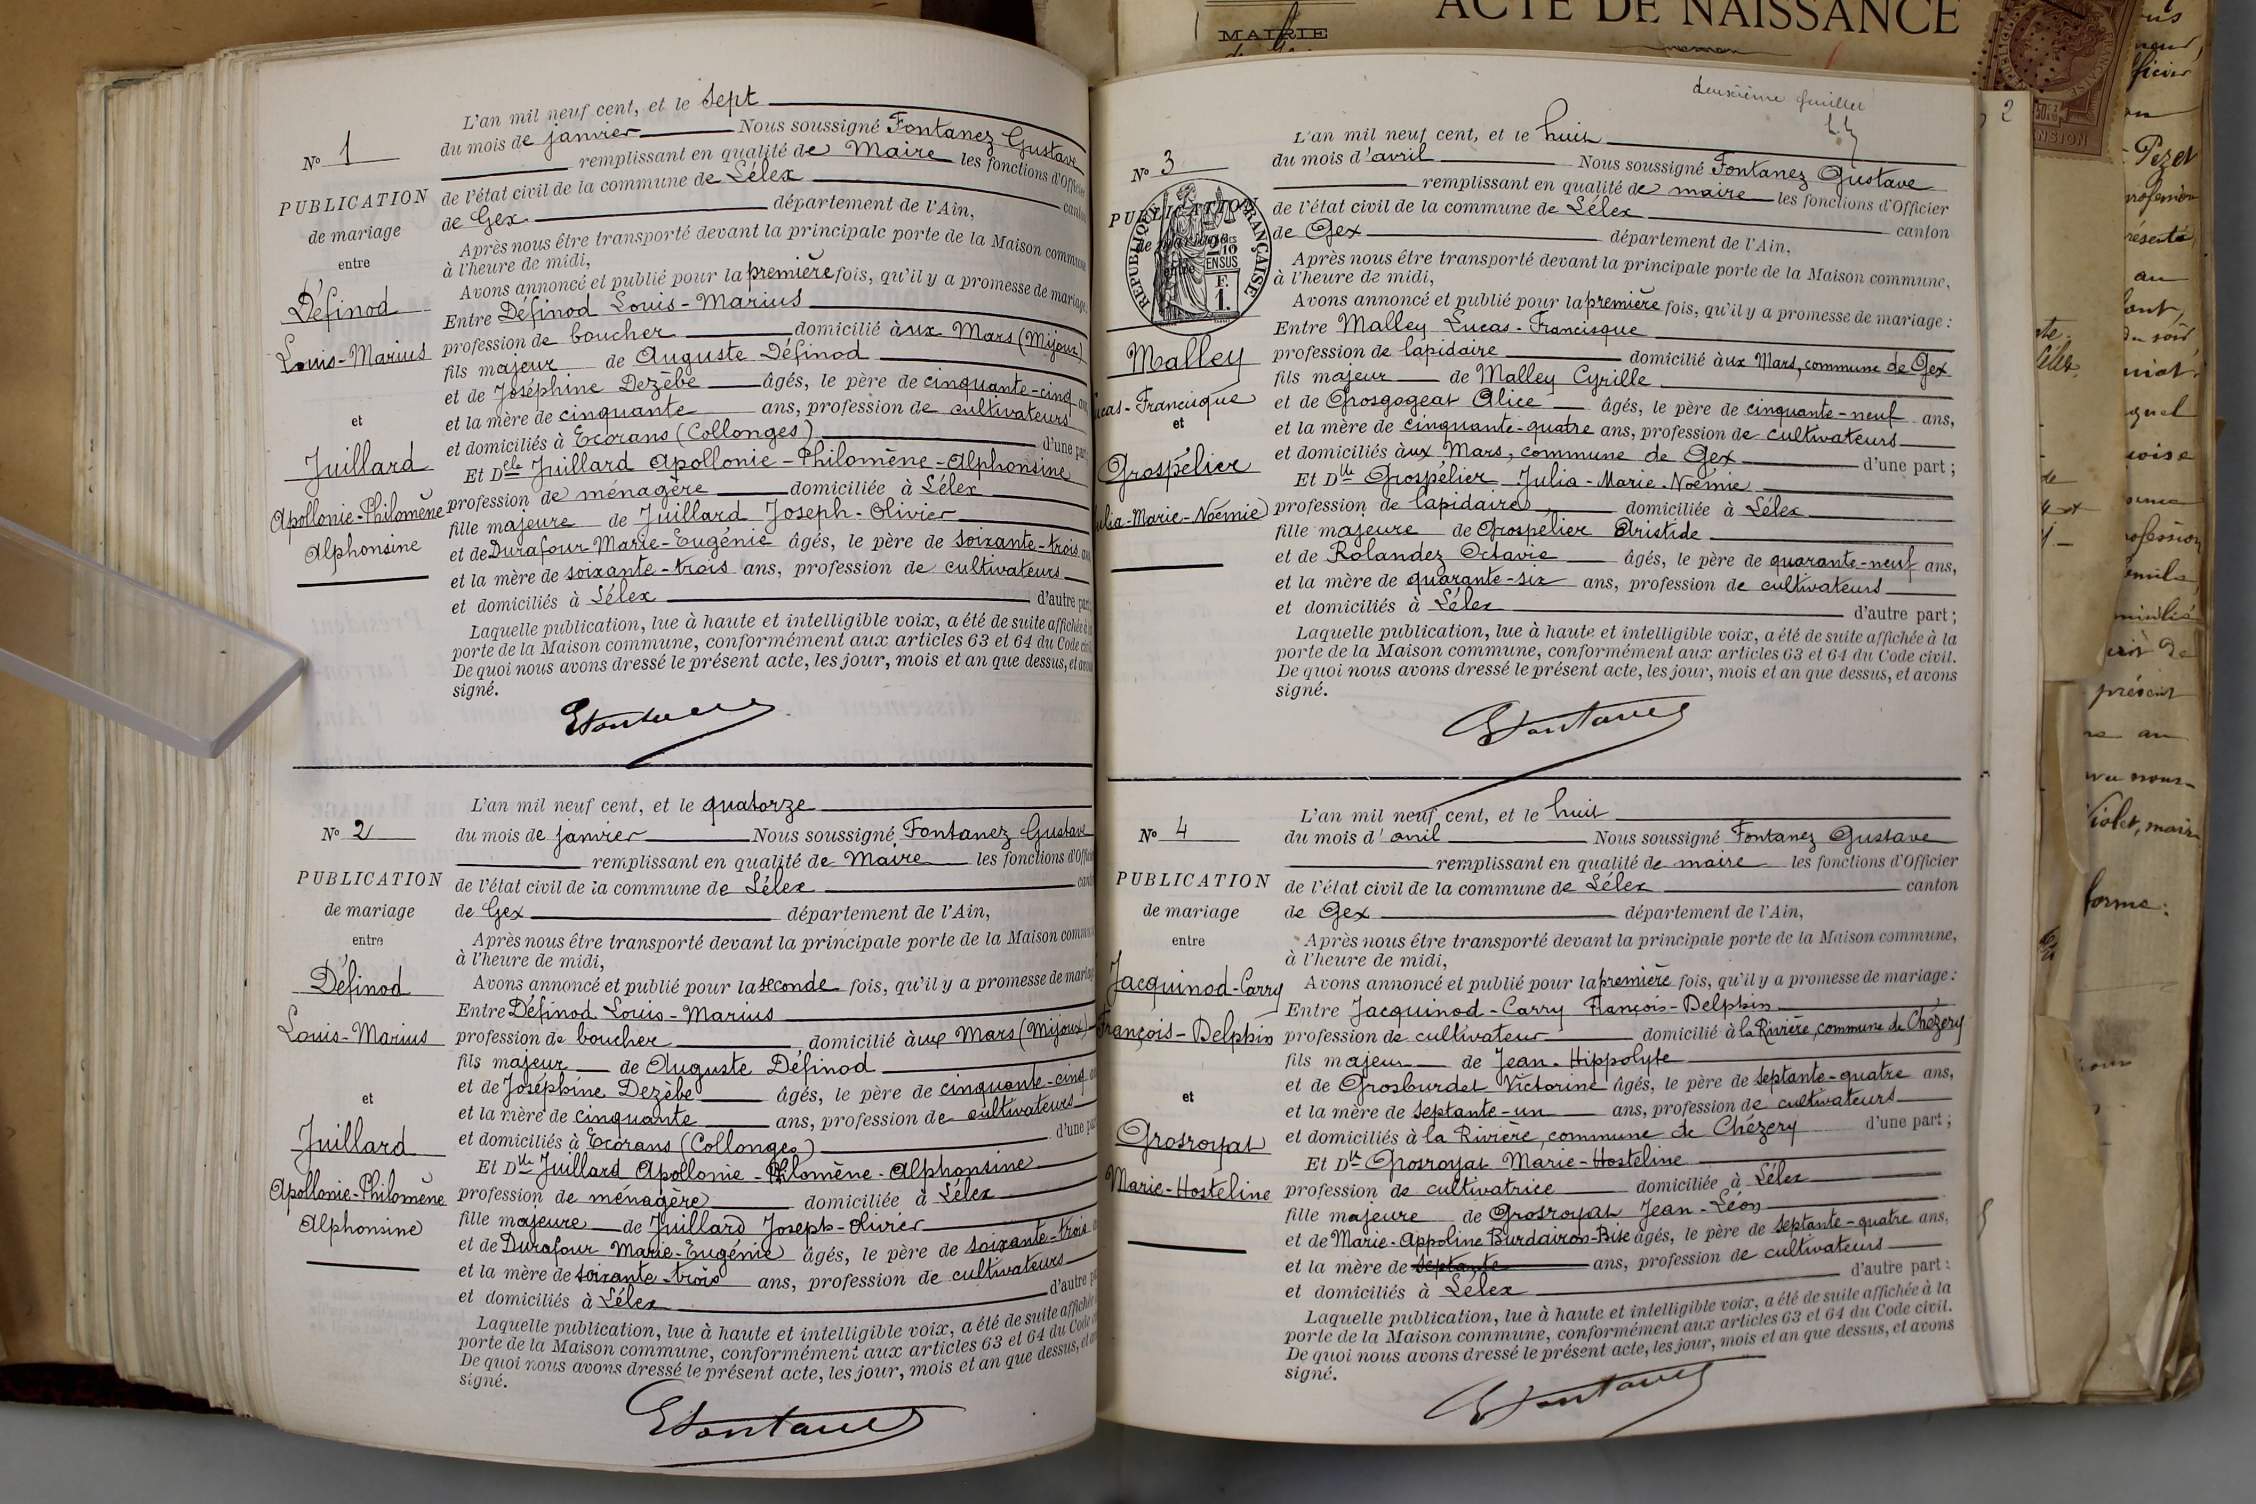 L'an mil neuf cent, et le sept
du mois de janvier Nous soussigné Fontanez Gustave
N° 1
remplissant en qualité de Maire les fonctions d'Officier
PUBLICATION
de mariage
entre
Définod
Louis-Marius
et
Juillard
Apollonie-Philomène
Alphonsine
de l'état civil de la commune de Lélex canton
de Gex département de l'Ain,
Après nous être transporté devant la principale porte de la Maison commune
à l'heure de midi,
Avons annoncé et publié pour la première fois, qu'il y a promesse de mariage:
Entre Définod Louis-Marius
profession de boucher domicilié aux Mars (Mijoux)
fils majeur de Auguste Définod
et de Joséphine Dezèbe âgés, le père de cinquante-cinq ans
et la mère de cinquante ans, profession de cultivateurs
et domiciliés à Ecorans (Collonges) d'une part
Et Delle Juillard Apollonie-Philomène-Alphonsine
profession de ménagère domiciliée à Lélex
fille majeure de Juillard Joseph-Olivier
et de Durafour Marie-Eugénie âgés, le père de soixante-trois ans
et la mère de soixante-trois ans, profession de cultivateurs
et domiciliés à Lélex d'autre part
Laquelle publication, lue à haute et intelligible voix, a été de suite affichée à la
porte de la Maison commune, conformément aux articles 63 et 64 du Code civil.
De quoi nous avons dressé le présent acte, les jour, mois et an que dessus, et avons
signé.
GFontanez
L'an mil neuf cent, et le quatorze
N° 2
du mois de janvier Nous soussigné Fontanez Gustave
remplissant en qualité de Maire les fonctions d'Officier
PUBLICATION
de mariage
entre
Définod
Louis-Marius
et
Juillard
Apollonie-Philomène
Alphonsine
de l'état civil de la commune de Lélex canton
de Gex département de l'Ain,
Après nous être transporté devant la principale porte de la Maison commune
à l'heure de midi,
Avons annoncé et publié pour la seconde fois, qu'il y a promesse de mariage
Entre Définod Louis-Marius
profession de boucher domicilié aux Mars (Mijoux)
fils majeur de Auguste Définod
et de Joséphine Dezèbe âgés, le père de cinquante-cinq ans
et la mère de cinquante ans, profession de cultivateurs
et domiciliés à Ecorans (Collonges) d'une part
Et Dlle Juillard Apollonie-Philomène-Alphonsine
profession de ménagère domiciliée à Lélex
fille majeure de Juillard Joseph-Olivier
et de Durafour Marie-Eugénie âgés, le père de soixante-trois
et la mère de soixante-trois ans, profession de cultivateurs
et domiciliés à Lélex d'autre part
Laquelle publication, lue à haute et intelligible voix, a été de suite affichée
porte de la Maison commune, conformément aux articles 63 et 64 du Code
De quoi nous avons dressé le présent acte, les jour, mois et an que dessus, et
signé.
GFontanez
MAIRIE
ACTE DE NAISSANCE
deuxième feuillet
2
L'an mil neuf cent, et le huit
du mois d'avril Nous soussigné Fontanez Gustave
N° 3
remplissant en qualité de maire les fonctions d'Officier
PUBLICATION
de mariage
entre
RÉPUBLIQUE FRANÇAISE
F.
1.
Malley
Lucas-Francisque
et
Grospélier
Julia-Marie-Noémie
de l'état civil de la commune de Lélex canton
de Gex département de l'Ain,
Après nous être transporté devant la principale porte de la Maison commune,
à l'heure de midi,
Avons annoncé et publié pour la première fois, qu'il y a promesse de mariage :
Entre Malley Lucas-Francisque
profession de lapidaire domicilié aux Mars, commune de Gex
fils majeur de Malley Cyrille
et de Grosgogeat Alice âgés, le père de cinquante-neuf ans,
et la mère de cinquante-quatre ans, profession de cultivateurs
et domiciliés aux Mars, commune de Gex d'une part ;
Et Dlle Grospélier Julia-Marie-Noémie
profession de lapidaire domiciliée à Lélex
fille majeure de Grospelier Aristide
et de Rolandez Octavie âgés, le père de quarante-neuf ans,
et la mère de quarante-six ans, profession de cultivateurs
et domiciliés à Lélex d'autre part ;
Laquelle publication, lue à haute et intelligible voix, a été de suite affichée à la
porte de la Maison commune, conformément aux articles 63 et 64 du Code civil.
De quoi nous avons dressé le présent acte, les jour, mois et an que dessus, et avons
signé.
GFontanez
L'an mil neuf cent, et le huit
N° 4
du mois d'avril Nous soussigné Fontanez Gustave
remplissant en qualité de maire les fonctions d'Officier
PUBLICATION
de mariage
entre
Jacquinod-Carry
François-Delphin
et
Grosroyat
Marie-Hosteline
de l'état civil de la commune de Lélex canton
de Gex département de l'Ain,
Après nous être transporté devant la principale porte de la Maison commune,
à l'heure de midi,
Avons annoncé et publié pour la première fois, qu'il y a promesse de mariage :
Entre Jacquinod-Carry François-Delphin
profession de cultivateur domicilié à la Rivière, commune de Chézery
fils majeur de Jean-Hippolyte
et de Grosburdet Victorine âgés, le père de septante-quatre ans,
et la mère de septante-un ans, profession de cultivateurs
et domiciliés à la Rivière, commune de Chézery d'une part ;
Et Dlle Grosroyat Marie-Hosteline
profession de cultivatrice domiciliée à Lélex
fille majeure de Grosroyat Jean-Léon
et de Marie-Appoline Burdairon-Bise âgés, le père de septante-quatre ans,
et la mère de septante ans, profession de cultivateurs
et domiciliés à Lélex d'autre part :
Laquelle publication, lue à haute et intelligible voix, a été de suite affichée à la
porte de la Maison commune, conformément aux articles 63 et 64 du Code civil.
De quoi nous avons dressé le présent acte, les jour, mois et an que dessus, et avons
signé.
GFontanez